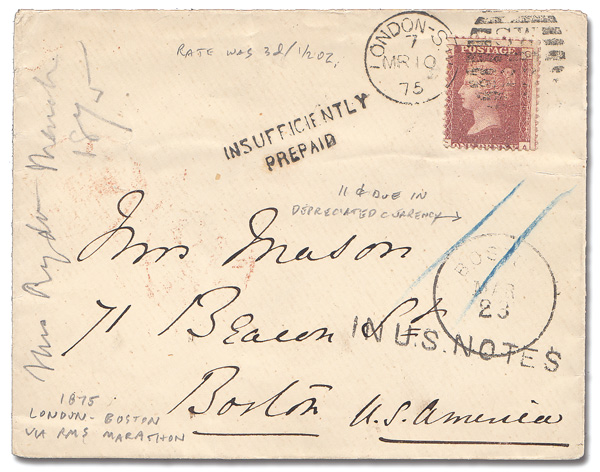 RATE WAS 3d/1/2 OZ.
LONDON-S
7
MR 10
75
POSTAGE
INSUFFICIENTLY
PREPAID
Mrs Ryder March
1875
11¢ DUE IN
DEPRECIATED CURRENCY →
Mrs Mason
71 Beacon St
Boston U.S. America
BOS
MAR
23
IN U.S. NOTES
1875
LONDON - BOSTON
VIA RMS MARATHON